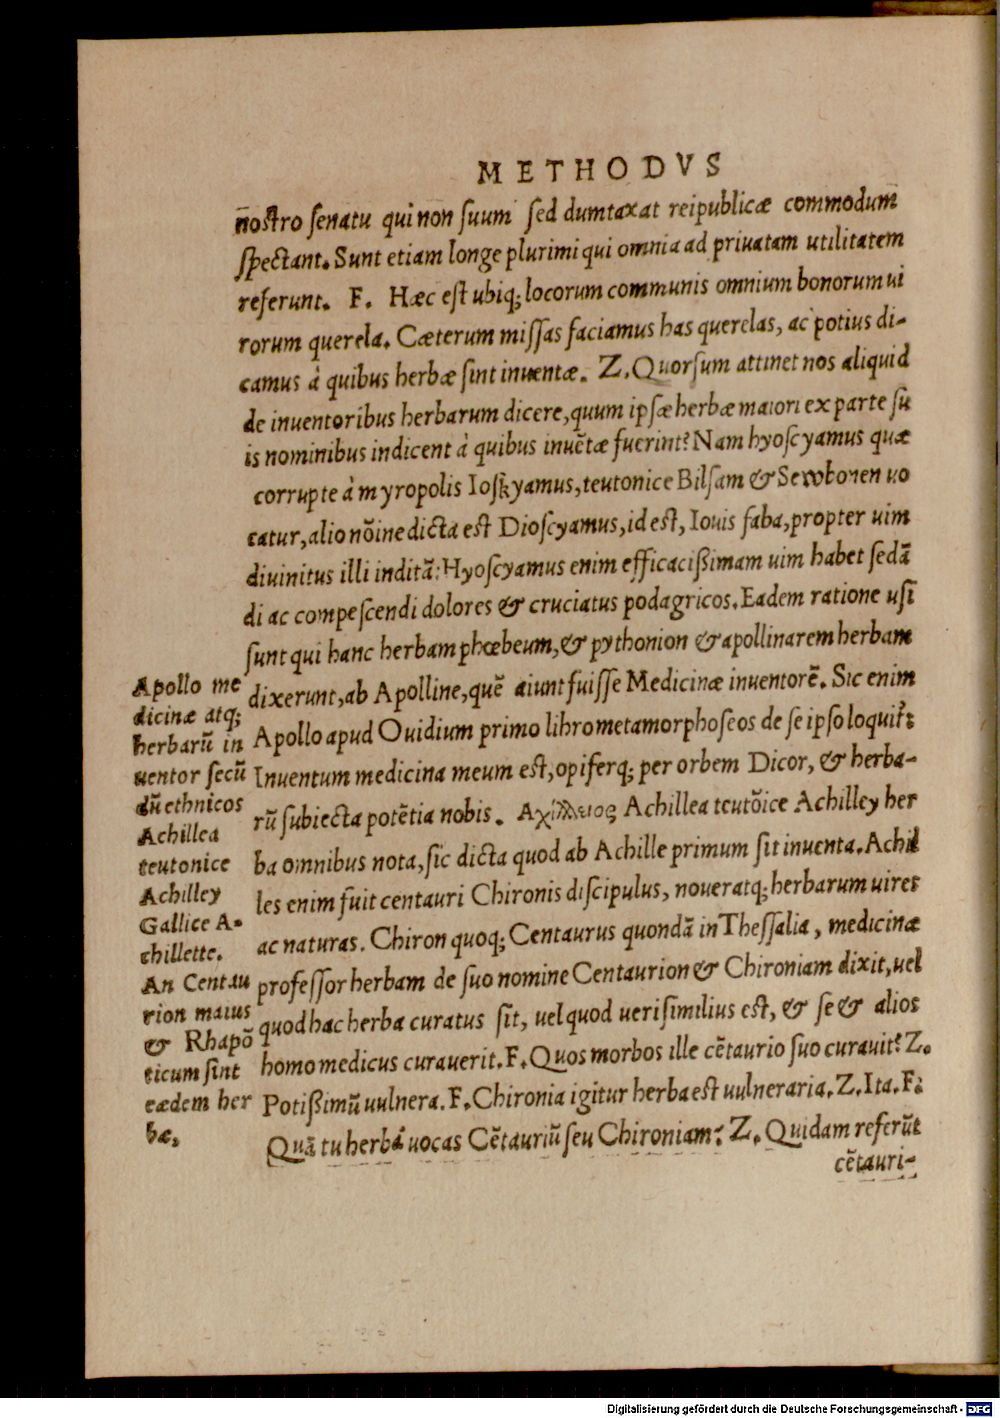 METHODVS
nostro ſenatu qui non ſuum ſed dumtaxat reipublicæ commodum
ſpectant. Sunt etiam longe plurimi qui omnia ad priuatam utilitatem
referunt. F. Hæc eſt ubiq; locorum communis omnium bonorum ui
rorum querela. Cæterum miſſas faciamus has querelas, ac potius di-
camus à quibus herbæ ſint inuentæ. Z. Quorſum attinet nos aliquid
de inuentoribus herbarum dicere, quum ipſæ herbæ maiori ex parte ſu
is nominibus indicent à quibus inuētæ fuerint? Nam hyoſcyamus quæ
corrupte à myropolis Ioſkyamus, teutonice Bilſam & Sewbonen uo
catur, alio nōine dicta eſt Dioſcyamus, id eſt, Iouis faba, propter uim
diuinitus illi inditā: Hyoſcyamus enim efficacißimam uim habet ſedā
di ac compeſcendi dolores & cruciatus podagricos. Eadem ratione uſi
ſunt qui hanc herbam phœbeum, & pythonion & apollinarem herbam
dixerunt, ab Apolline, quē aiunt fuiſſe Medicinæ inuentorē. Sic enim
Apollo apud Ouidium primo libro metamorphoſeos de ſe ipſo loquit̄:
Inuentum medicina meum eſt, opiferq; per orbem Dicor, & herba-
rū ſubiecta potētia nobis. Αχίλλειος Achillea teutōice Achilley her
ba omnibus nota, ſic dicta quod ab Achille primum ſit inuenta. Achil
les enim fuit centauri Chironis diſcipulus, noueratq; herbarum uires
ac naturas. Chiron quoq; Centaurus quondā in Theſſalia, medicinæ
profeſſor herbam de ſuo nomine Centaurion & Chironiam dixit, uel
quod hac herba curatus ſit, uel quod ueriſimilius eſt, & ſe & alios
homo medicus curauerit. F. Quos morbos ille cētaurio ſuo curauit? Z.
Potißimū uulnera. F. Chironia igitur herba eſt uulneraria. Z. Ita. F.
Quā tu herbā uocas Cētauriū ſeu Chironiam? Z. Quidam referūt
cētauri-
Apollo me
dicinæ atq;
herbarū in
uentor ſecū
dū ethnicos
Achillea
teutonice
Achilley
Gallice A-
chillette.
An Centau
rion maius
& Rhapō
ticum ſint
eædem her
bæ.
Digitalisierung gefördert durch die Deutsche Forschungsgemeinschaft - DFG